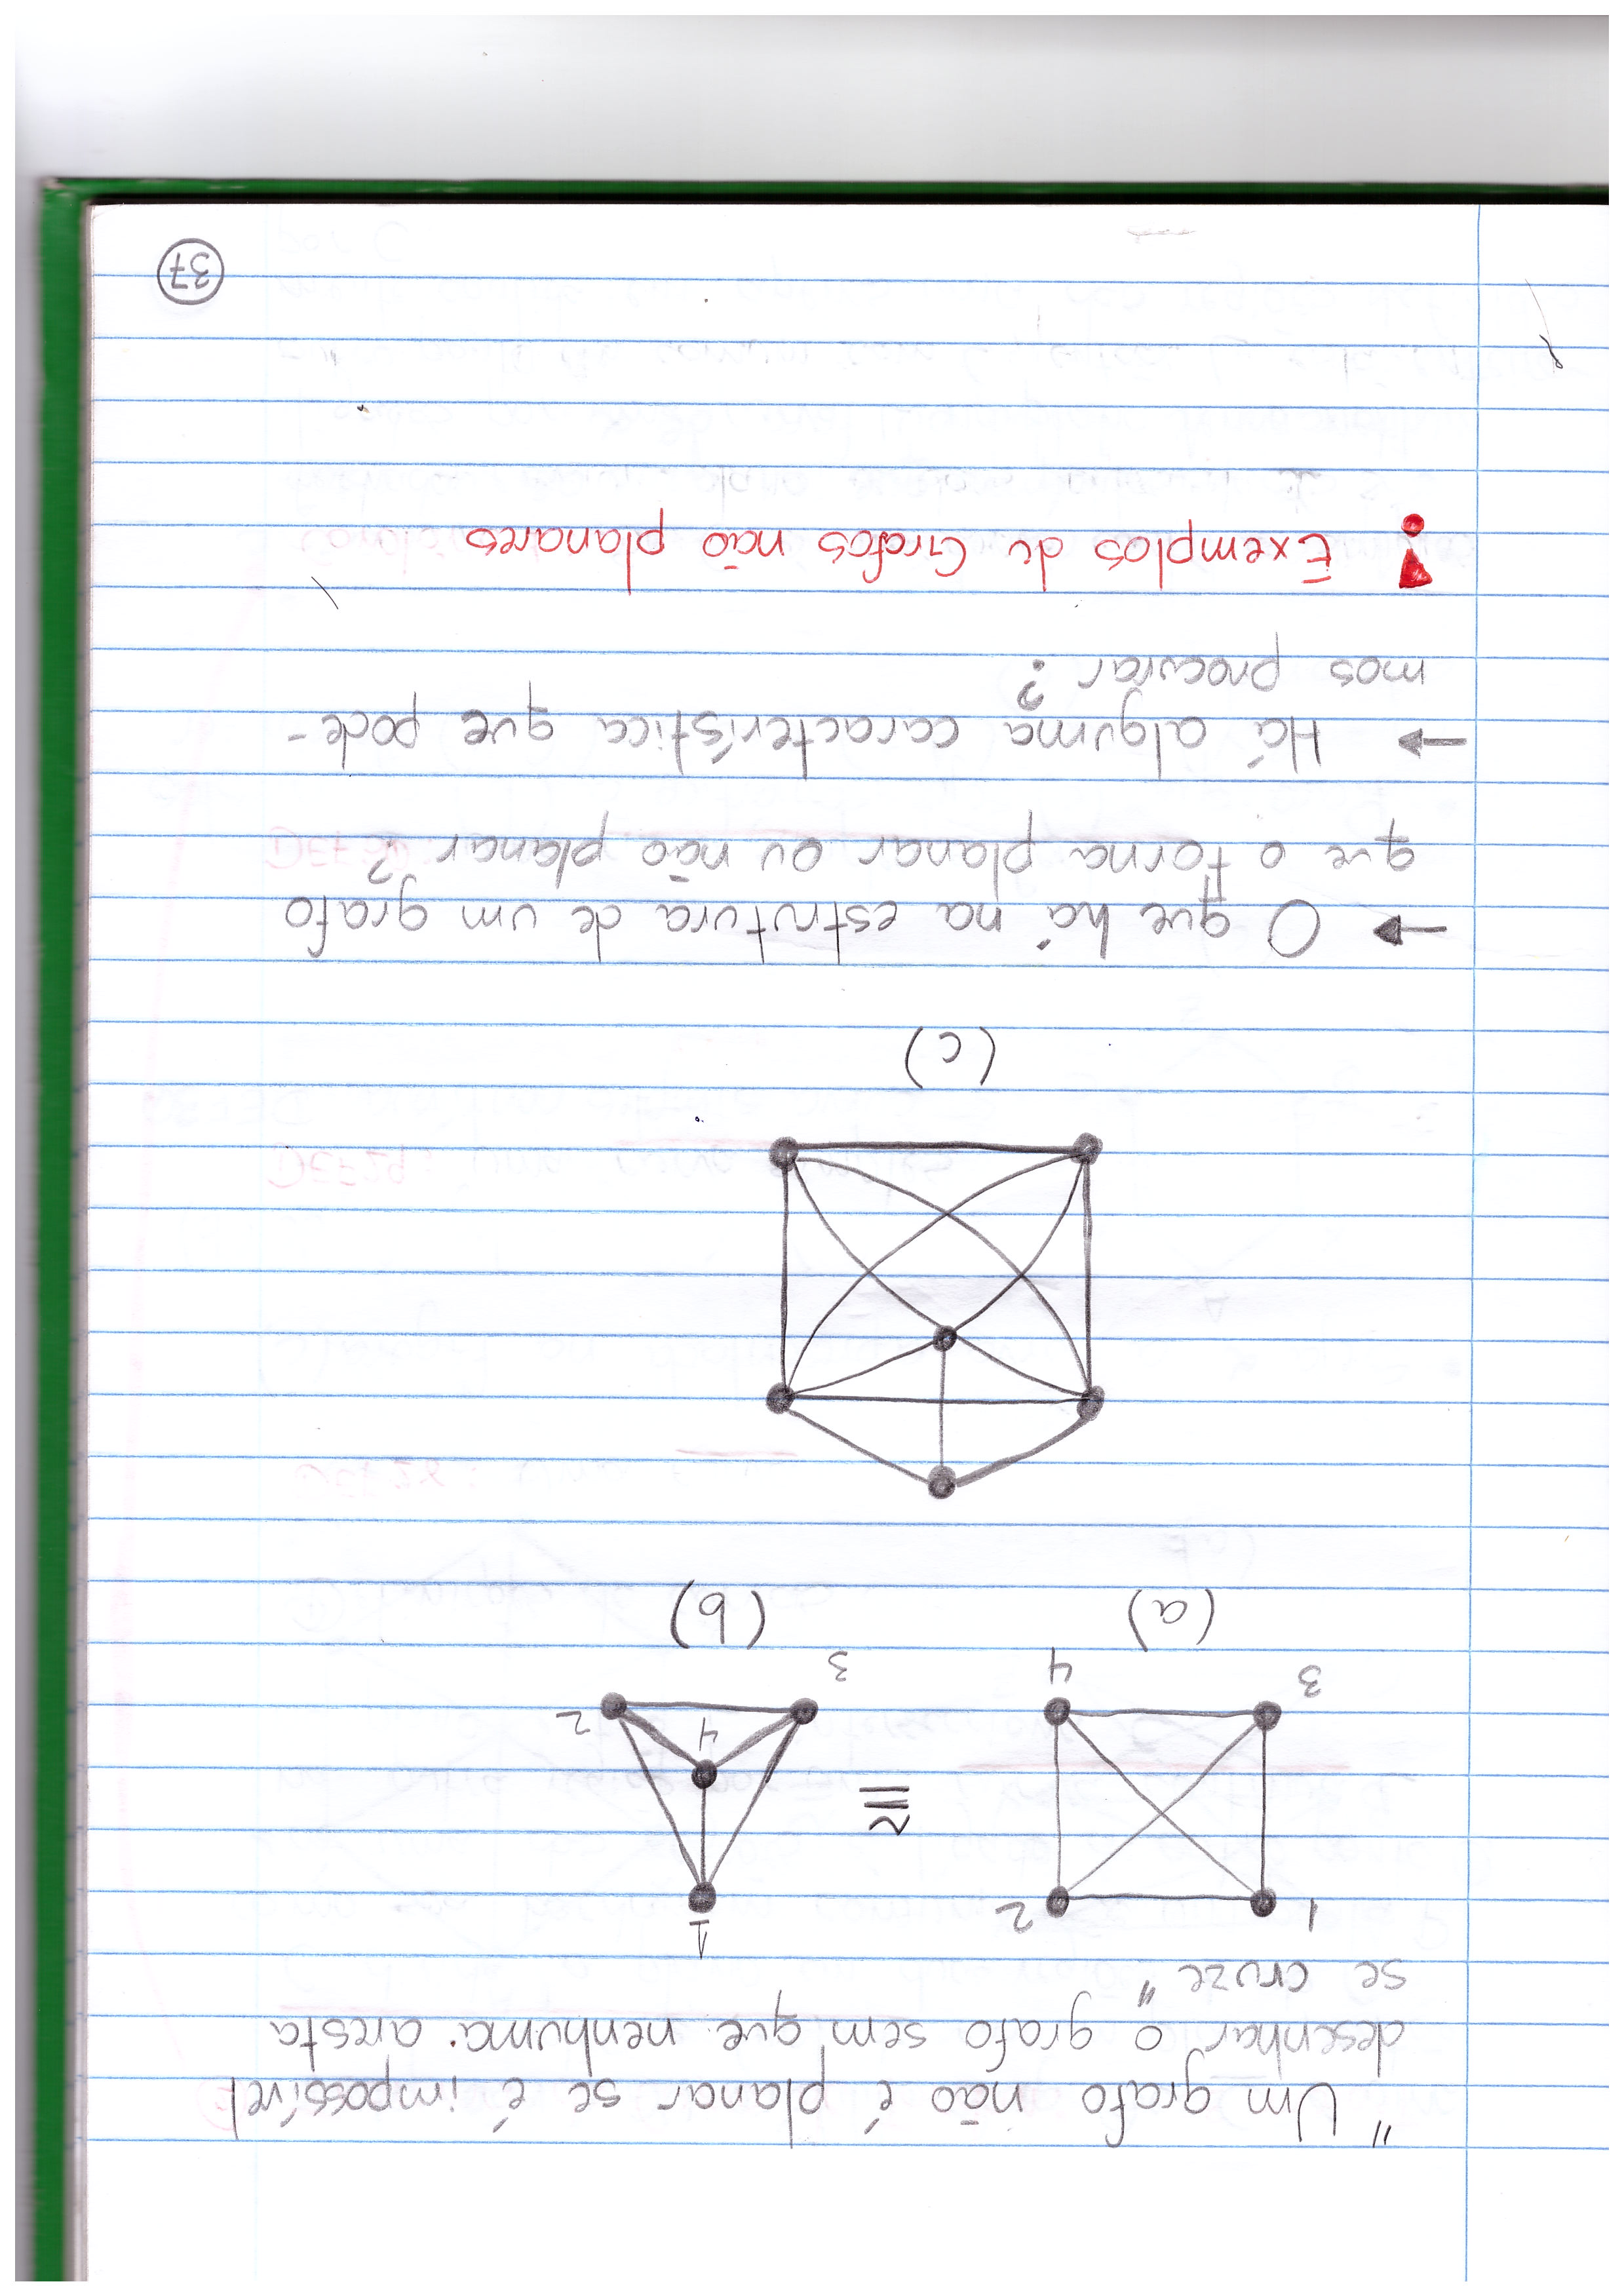 " Um grafo não é planar se é impossível
desenhar o grafo sem que nenhuma aresta
se cruze "
1 2 3 4
≅
1 2 3 4
(a) (b)
(c)
→ O que há na estrutura de um grafo
que o torna planar ou não planar?
→ Há alguma característica que pode-
mos procurar?
! Exemplos de Grafos não planares
37